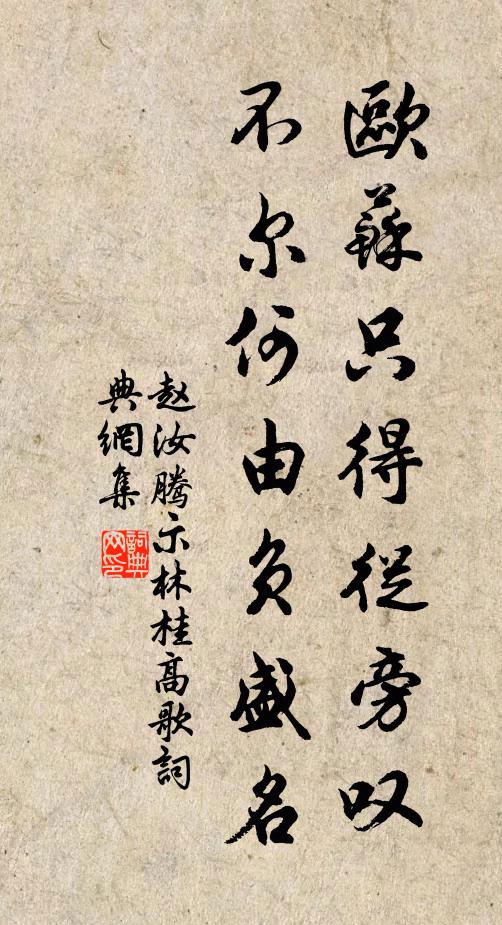 歐蘇只得從旁叹
不尔何由负盛名
赵汝腾示林桂高歌詞
典網集
詞典網印